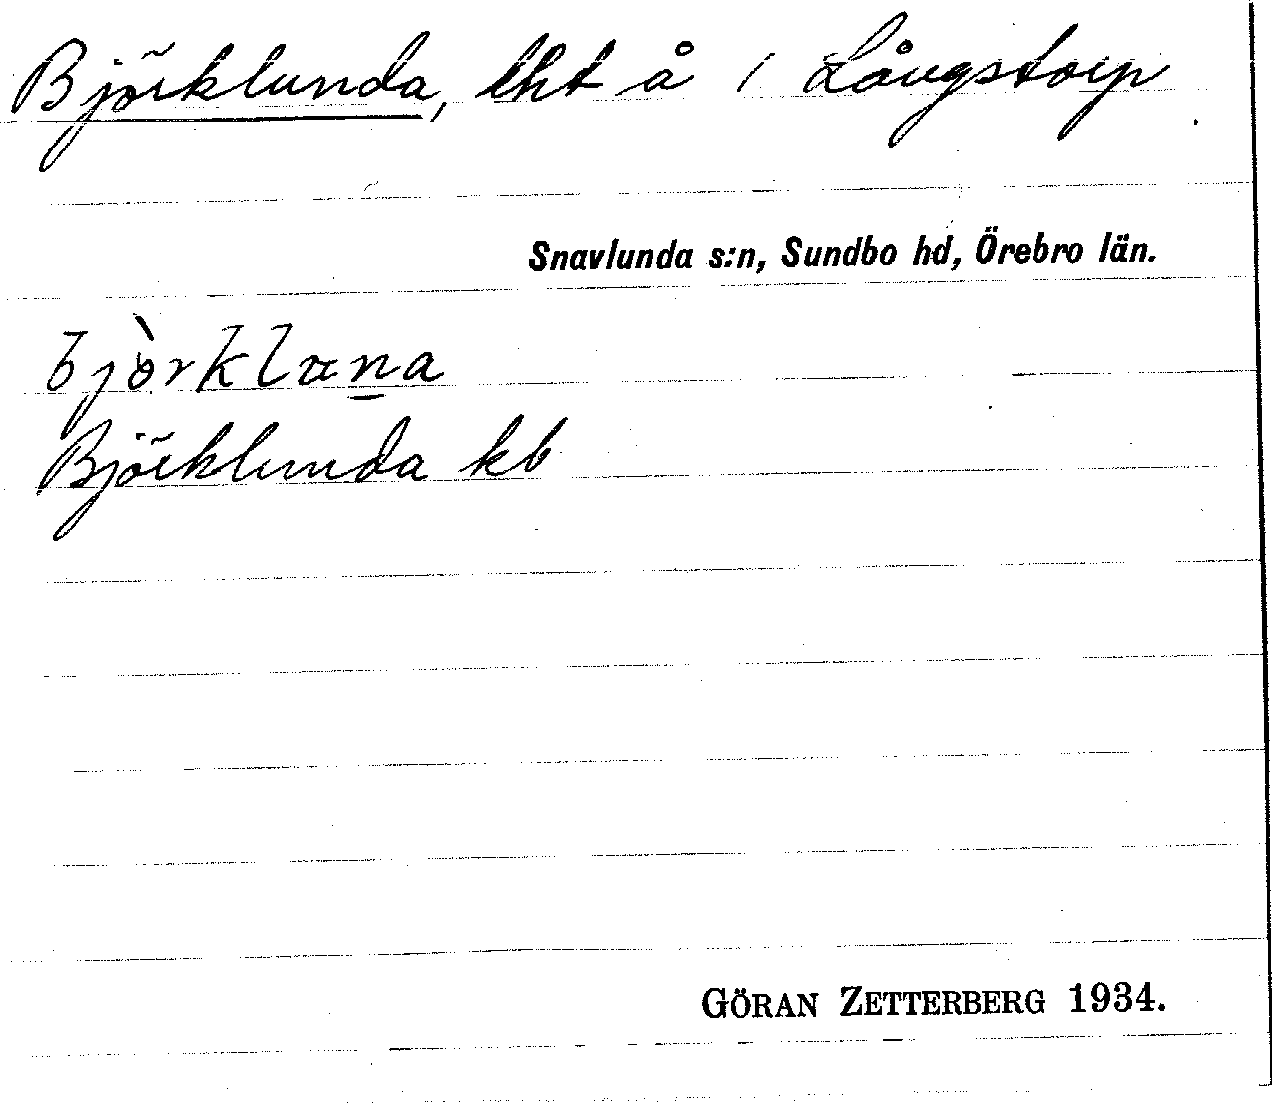 Björklunda, lht å / Långstorp
Snavlunda s:n, Sundbo hd, Örebro län.
bjòrkluna
Björklunda kb
GÖRAN ZETTERBERG 1934.